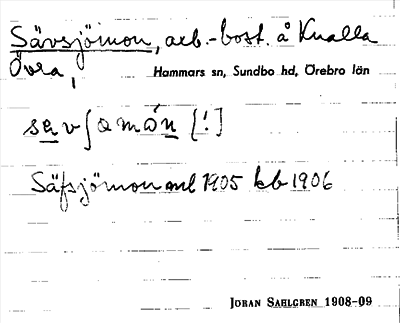 Sävsjömon, arb.-bost. å Knalla
Övra,
Hammars sn, Sundbo hd, Örebro län
[!]
Säfsjömon ml 1905 kb 1906
JORAN SAHLGREN 1908-09